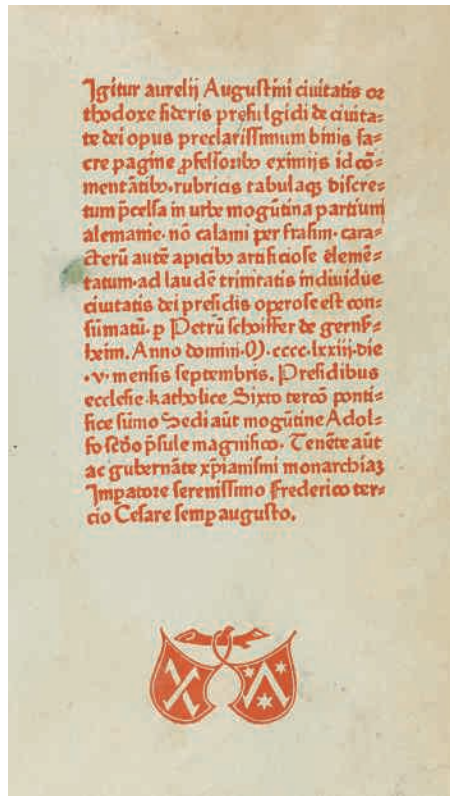 Igitur aurelij Augustini ciuitatis or
thodoxe sideris prefulgidi de ciuita⸗
te dei opus preclarissimum binis sa⸗
cre pagine ꝓfessoribꝰ eximijs id cō⸗
mentātibꝰ. rubricis tabulaqꝫ discre⸗
tum p̄celsa in urbe mogūtina partium
alemanie. nō calami per frasim. cara⸗
cterū autē apicibꝰ artificiose elemē⸗
tatum. ad laudē trinitatis indiuidue
ciuitatis dei presidis operose est con⸗
sūmatū. ꝑ Petrū schoiffer de gernß⸗
heim. Anno domini. M. cccc. lxxiij. die
.v. mensis septembris. Presidibus
ecclesie katholice Sixto tercō ponti⸗
fice sūmo Sedi aūt mogūtine Adol⸗
fo scdō p̄sule magnifico. Tenēte aūt
ac gubernāte xp̄ianismi monarchiaꝫ
Impatore serenissimo Frederico ter⸗
cio Cesare semꝑ augusto.